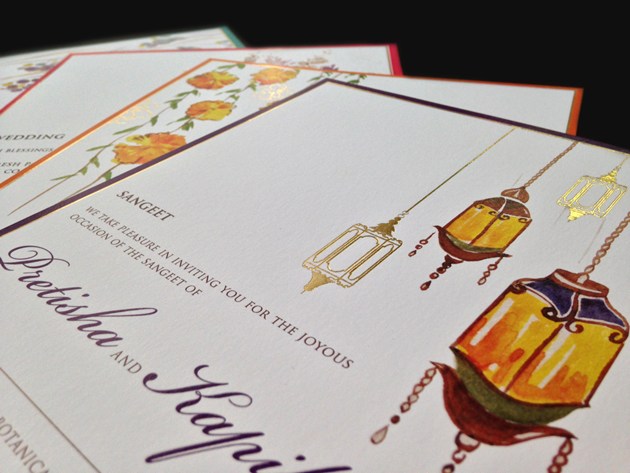 WEDDING
BLESSINGS
SANGEET
WE TAKE PLEASURE IN INVITING YOU FOR THE JOYOUS
OCCASION OF THE SANGEET OF
Pretisha AND
Kapil
BOTANICA